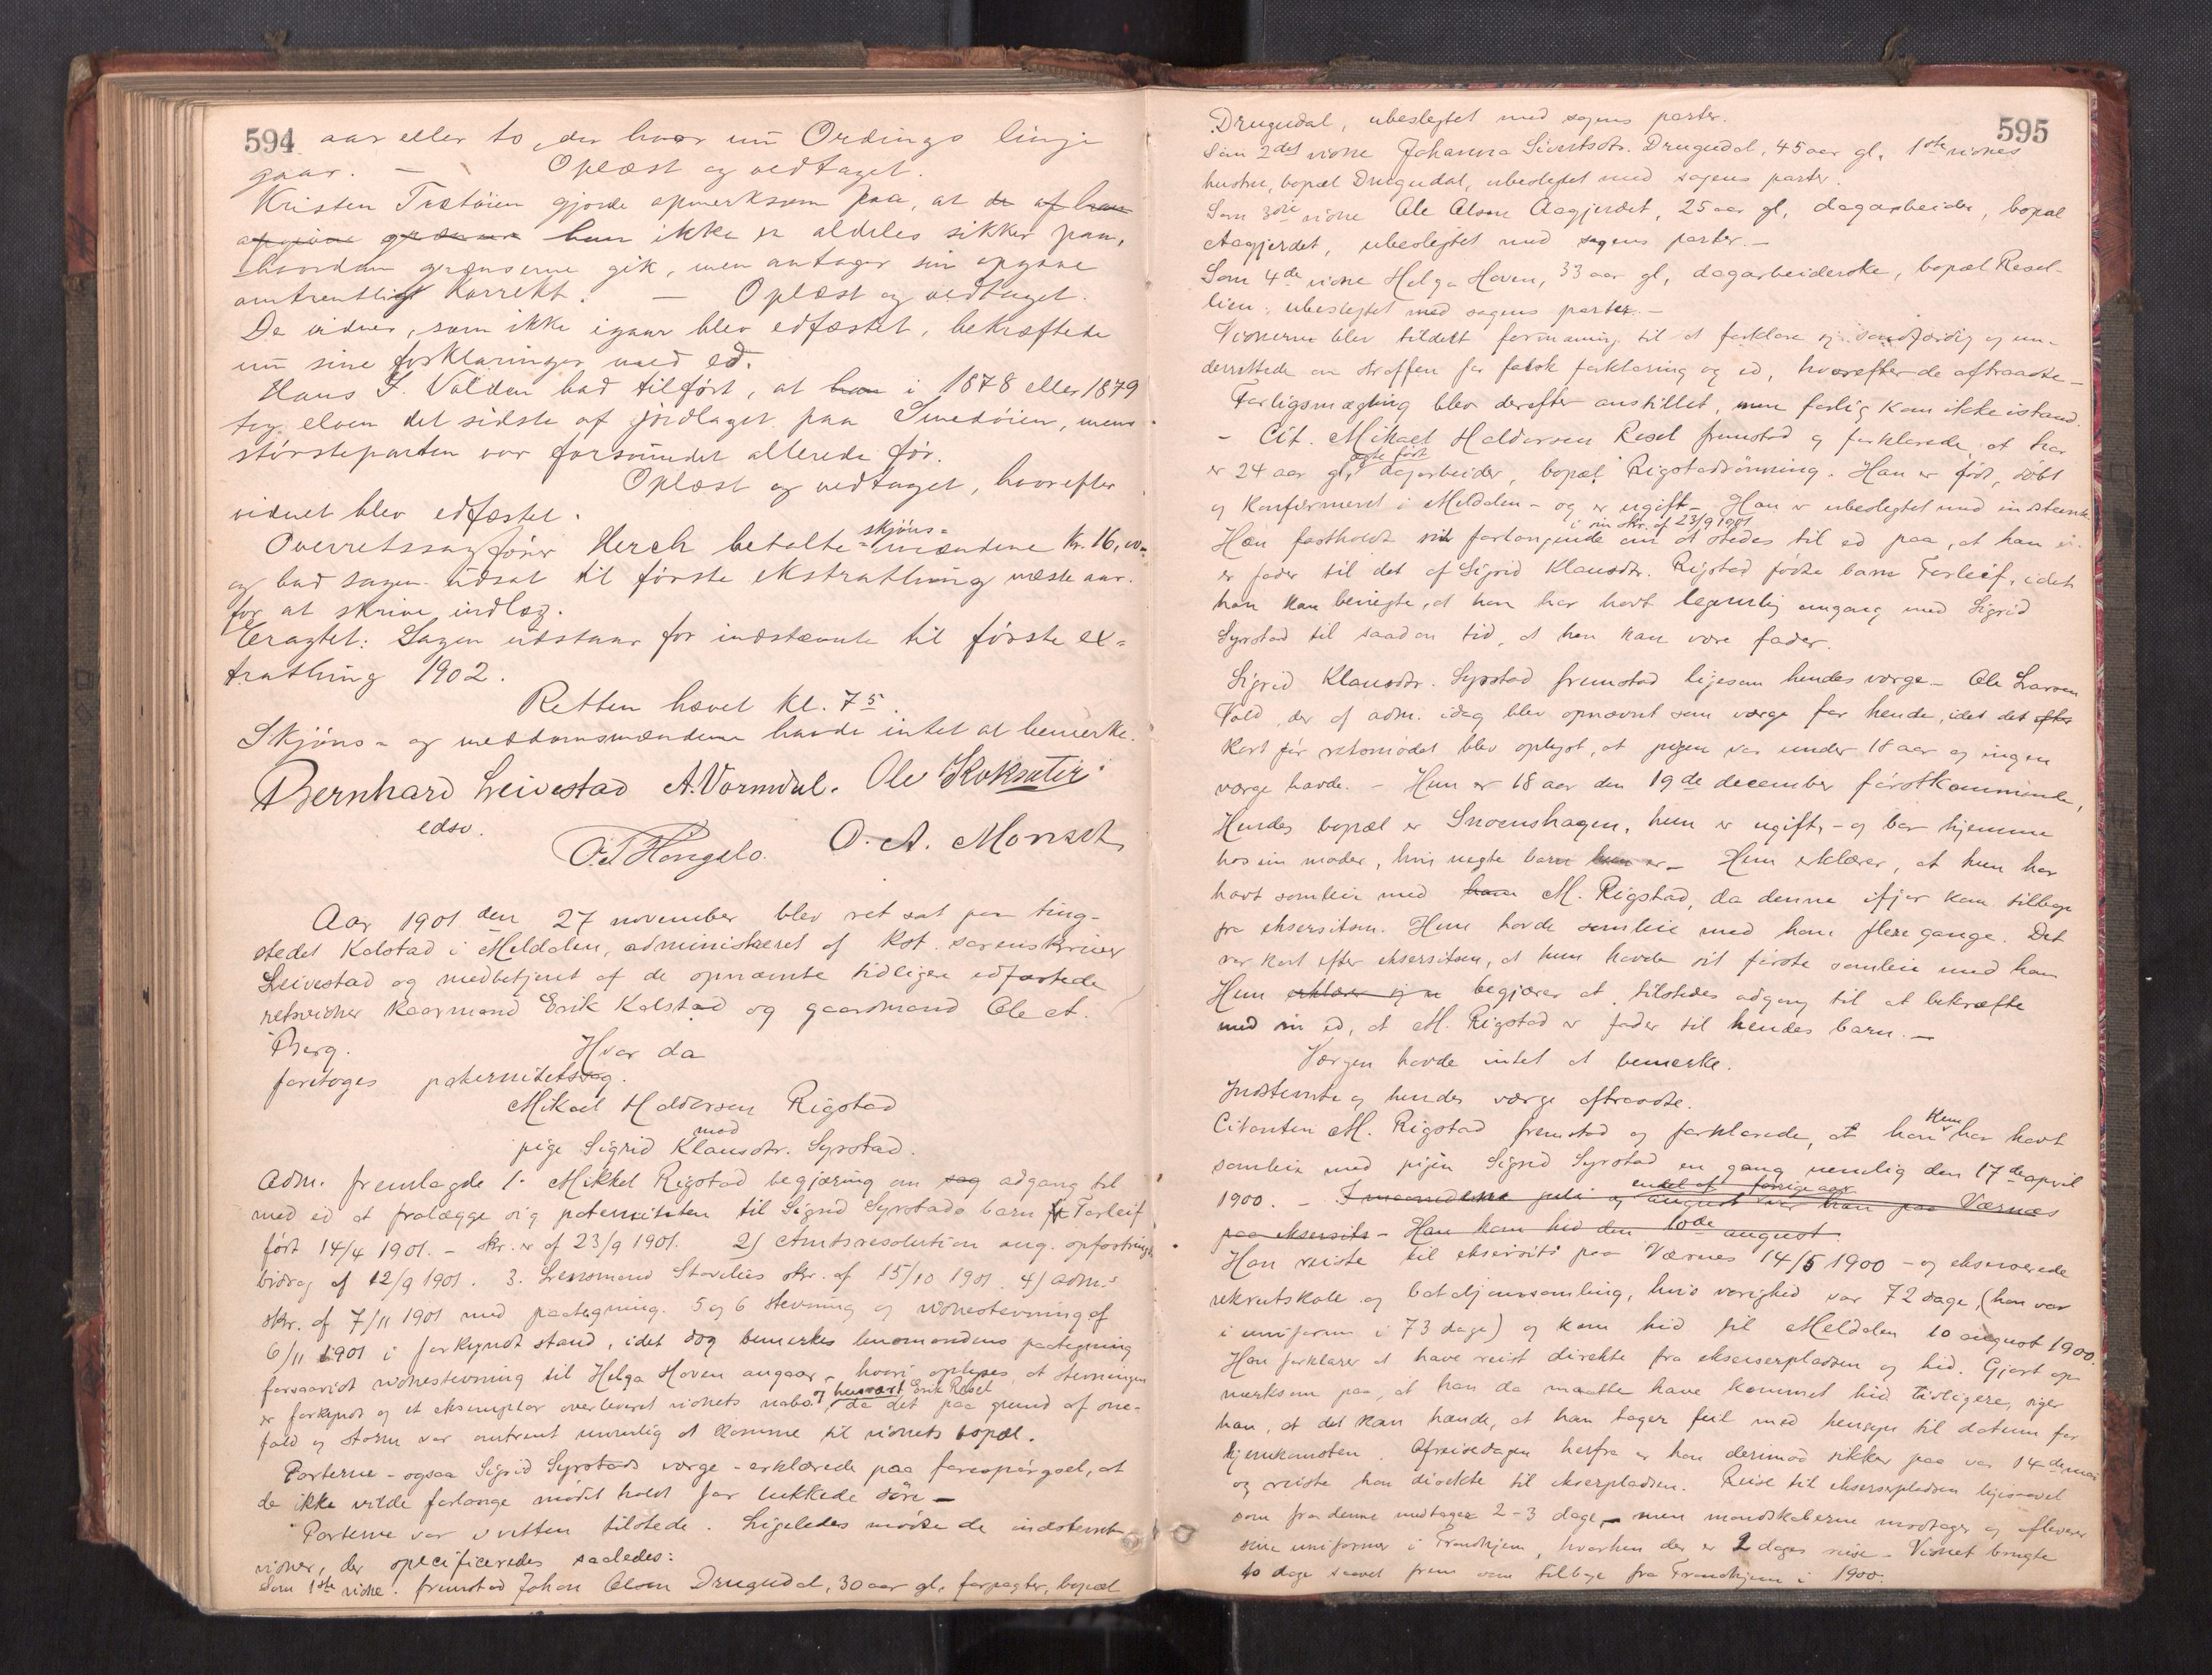 594
aar eller to, der hvor nu Ordings linje
gaar. — Oplæst og vedtaget.
Kristen Trætøien gjorde opmerksom paa, at de af ham
opgivne grænser han ikke er aldeles sikker paa,
hvordan grænserne gik, men antager sin opgave
omtrentligt korrekt. — Oplæst og vedtaget.
De vidner, som ikke igaar blev edfæstet, bekræftede
nu sine forklaringer med ed.
Hans I. Volden bad tilført, at han i 1878 eller 1879
tog elven det sidste af jordlaget paa Smedøien, mens
størsteparten var forsvundet allerede før.
Oplæst og vedtaget, hvorefter
vidnet blev edfæstet.
Overretssagfører Herch betalte skjøns-
mændene kr. 16,00
og bad sagen udsat til første ekstrathing næste aar.
for at skrive indlæg.
Eragtet: Sagen udstaar for indstevnte til første ex-
trathing 1902.
Retten hævet kl. 7 5.
Skjøns- og meddomsmændene havde intet at bemerke.
Bernhard Leivestad A. Vormdal. Ole Koksæter
edsv.
O. A. Monset
Aar 1901 den 27 november blev ret sat paa ting-
stedet Kalstad i Meldalen, administreret af Kst. sorenskriver
Leivestad og medbetjent af de opnævnte tidligere edfæstede
retsvidner kaarmand Erik Kalstad og gaardmand Ole A.
Berg. Hvor da
foretoges paternitetssag.
Mikael Haldorsen Rigstad
mod
pige Sigrid Klausdtr. Syrstad.
Adm. fremlagde 1. Mikkel Rigstad begjæring om sag adgang til
med ed at fralægge sig paterniteten til Sigrid Syrstads barn Torleif
født 14/4 1901. – skr. er af 23/9 1901. 2) Amtsresolution ang. opfostrings
bidrag af 12/9 1901. 3. Lensmand Stavlies skr. af 15/10 1901. 4) adm.s
skr. af 7/11 1901 med paategning. 5 og 6 Stevning og vidnestevning af
6/11 1901 i forkyndt stand, idet dog bemerkes lensmandens paategning
forsaavidt vidnestevning til Helga Hoven angaar – hvori oplyses, at stevningen
er forkyndt og et eksemplar overleveret vidnets nabo og husvært Erik Resel da det paa grund af sne-
fald og storm var omtrent umulig at komme til vidnets bopæl.
Parterne – ogsaa Sigrid Syrstads værge – erklærede paa forespørgsel, at
de ikke vilde forlange mødet holdt for lukkede døre –
Parterne var i retten tilstede. Ligeledes mødte de indstevnte
vidner, der specificeredes saaledes:
Som 1ste vidne: fremstod Johan Olsen Drugudal, 30 aar gl, forpagter, bopæl
595
Drugudal, ubeslegtet med sagens parter.
Som 2det vidne Johanna Sivertsdtr. Drugudal, 45 aar gl, 1ste vidnes
hustru, bopæl Drugudal, ubeslegtet med sagens parter.
Som 3die vidne Ole Olsen Aagjerdet, 25 aar gl, dagarbeider, bopæl
Aagjerdet, ubeslegtet med sagens parter. –
Som 4de vidne Helga Hoven, 33 aar gl, dagarbeiderske, bopæl Resel-
lien, ubeslegtet med sagens parter. –
Vidnerne blev tildelt formaning til at forklare sig sandfærdig og un-
derrettede om straffen for falsk forklaring og ed, hvorefter de aftraadte –
Forligsmægling blev derefter anstillet, men forlig kom ikke istand.
– Cit. Mikael Haldorsen Resel fremstod og forklarede, at han
er 24 aar gl, ægte født dagarbeider, bopæl Rigstadrønning. Han er født, døbt
og konfirmeret i Meldalen – og er ugift – Han er ubeslegtet med indstevnte
Han fastholdt sit i sin skr. af 23/9 1901 forlangende om at stedes til ed paa, at han ei
er fader til det af Sigrid Klausdtr. Rigstad fødte barn Torleif, idet
han kan benegte, at han har havt legemlig omgang med Sigrid
Syrstad til saadan tid, at han kan være fader.
Sigrid Klausdtr. Syrstad fremstod ligesom hendes værge – Ole Larsen
Vold, der af adm. idag blev opnævnt som værge for hende, idet det efter
kort før retsmødet blev oplyst, at pigen var under 18 aar og ingen
værge havde. – Hun er 18 aar den 19de december førstkommende,
Hendes bopæl er Snoenshagen, hun er ugift, – og bor hjemme
hos sin moder, hvis uegte barn hun er – Hun erklærer, at hun har
havt samleie med ham M. Rigstad, da denne ifjor kom tilbage
fra eksersitsen. Hun havde samleie med ham flere gange. Det
var kort efter eksersitsen, at hun havde sit første samleie med ham
Hun erklærer sig er begjærer at tilstedes adgang til at bekræfte
med sin ed, at M. Rigstad er fader til hendes barn. –
Værgen havde intet at bemerke.
Indstevnte og hendes værge aftraadte.
Citanten M. Rigstad fremstod og forklarede, at han kun har havt
samleie med pigen Sigrid Syrstad en gang nemlig den 17de april
1900. – I maanederne juli og endel af august forrige aar var han paa Værnes
paa eksersits – Han kom hid den 10de august.
Han reiste til eksersits paa Værnes 14/5 1900 – og ekserserede
rekrutskole og bataljonssamling, hvis varighed var 72 dage, (han var
i uniform i 73 dage) og kom hid til Meldalen 10 august 1900.
Han forklarer at have reist direkte fra ekserserpladsen og hid. Gjort op-
merksom paa, at han da maatte have kommet hid tidligere, siger
han, at det kan hænde, at han tager feil med hensyn til datum for
hjemkomsten. Afreisedagen herfra er han derimod sikker paa var 14de mai
og reiste han direkte til ekserpladsen. Reise til ekserserpladsen ligesaavel
som fra denne medtager 2-3 dage, – men mandskaberne modtager og afleverer
sine uniformer i Trondhjem, hvorhen der er 2 dages reise – Vidnet brugte
to dage saavel frem som tilbage fra Trondhjem i 1900.